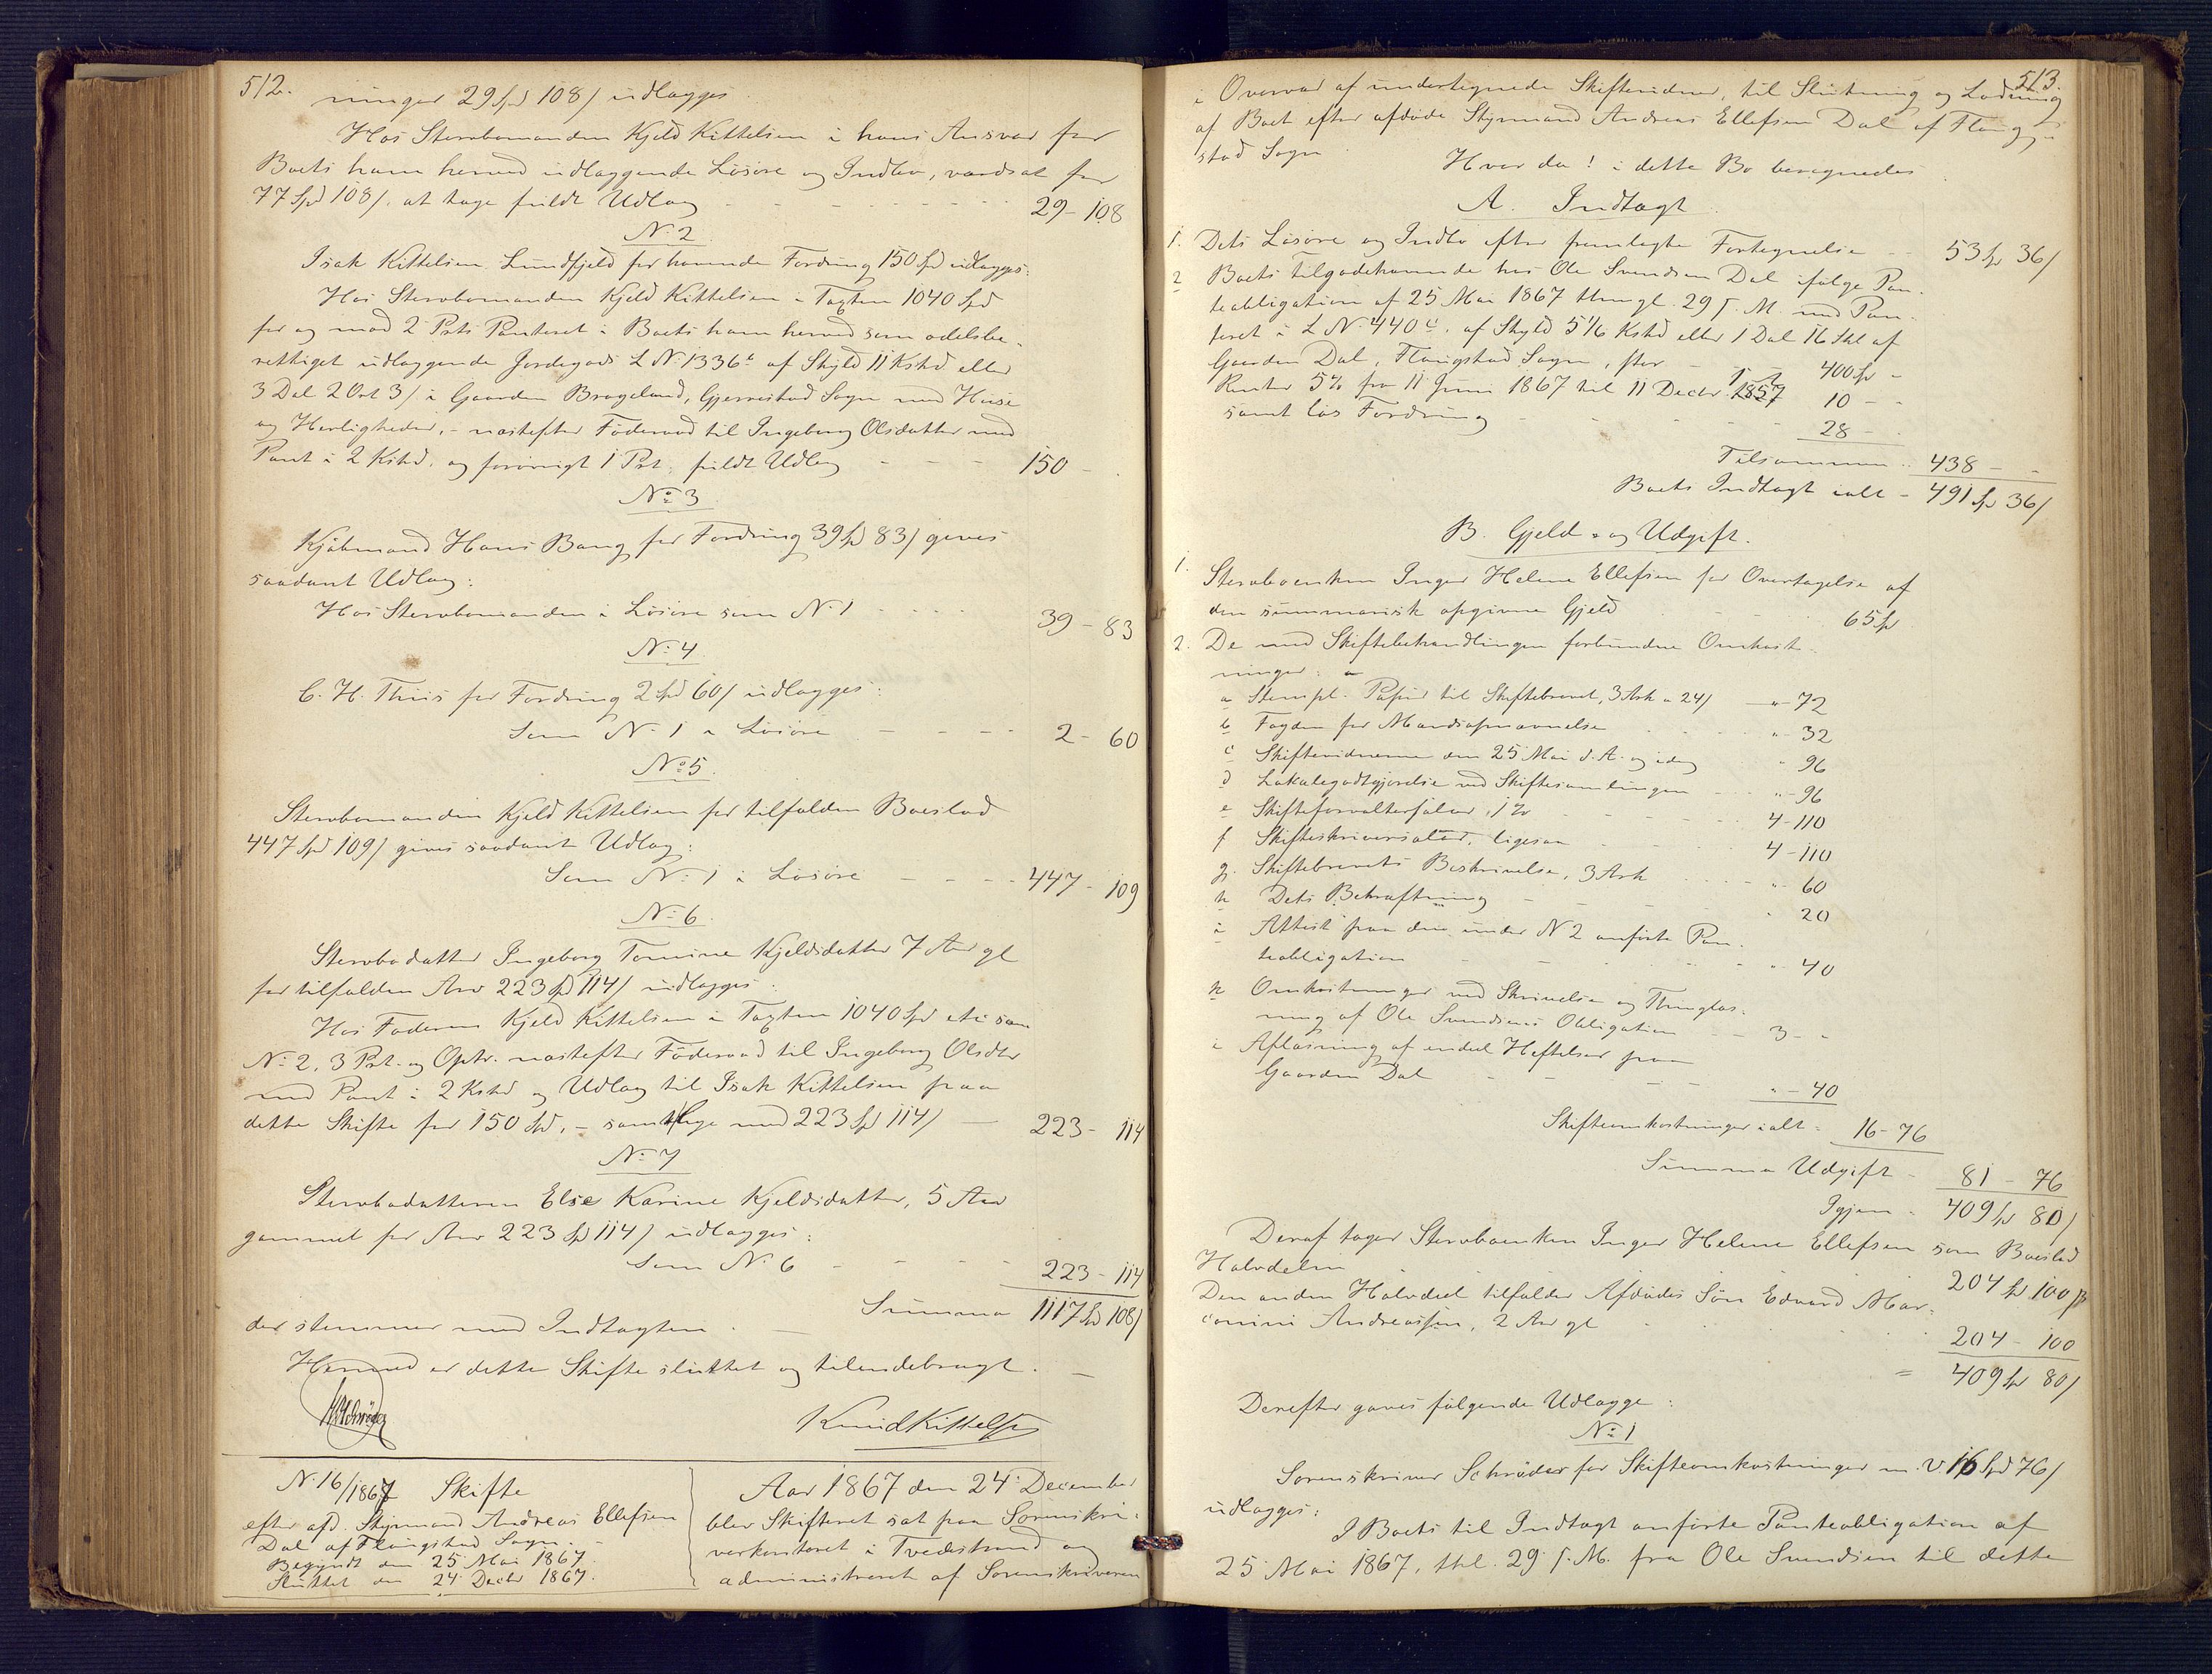 512.
ninger 29 Spd 108/ udlægges
Hos Stervbomanden Kjeld Kittelsen i hans Ansvar for
Boets ham herved udlæggende Løsøre og Indbo, værdsat for
77 Spd 108/. at tage fuldt Udlæg - - - 29 - 108
N: 2
Isak Kittelsen Lundfjeld for havende Fordring 150 Spd udlægges:
Hos Stervbomanden Kjeld Kittelsen i Taxten 1040 Spd
for og mod 2 Prts Panteret i Boets ham herved som odelsbe-
rettiget udlæggende Jordegods L N: 1336 af Skyld 11 Kshd eller
3 Dal 2 Ort 3/ i Gaarden Brageland, Gjerrestad Sogn med Huse
og Herligheder, - næstefter Föderaad til Ingeborg Olsdatter med
Pant i 2 Kshd. og forøvrigt 1 Prt. fuldt Udlæg - - - 150 -
No 3
Kjøbmand Hans Bang for Fordring 39 Spd 83/ gives
saadant Udlæg:
Hos Stervbomanden i Løsøre som N: 1 - - - 39 - 83
N: 4
C. H. Thiis for Fordring 2 Spd 60/ udlægges:
Som N: 1 i Løsøre - - - 2 - 60
No 5
Stervbomanden Kjeld Kittelsen for tilfalden Boeslod
447 Spd 109/ gives saadant Udlæg:
Som N: 1 i Løsøre - - - 447 - 109
N: 6
Stervbodatter Ingeborg Tomine Kjeldsdatter 7 Aar gl
for tilfalden Arv 223 Spd 114/ udlægges:
Hos Faderen Kjeld Kittelsen i Taxten 1040 Spd etc som
N: 2, 3 Prt. og Optr. næstefter Föderaad til Ingeborg Olsdtr
med Pant i 2 Kshd og Udlæg til Isak Kittelsen paa
dette Skifte for 150 Spd, - samt lige med 223 Spd 114/ - 223 - 114
N: 7
Stervbodatteren Else Karine Kjeldsdatter, 5 Aar
gammel for Arv 223 Spd 114/ udlægges:
Som N: 6 - - - 223 - 114
Summa 1117 Spd 108/
der stemmer med Indtægten.
Hermed er dette Skifte sluttet og tilendebragt.
Schrøder
Knud Kittelsen
N: 16/1867 Skifte
efter afd. Styrmand Andreas Ellefsen
Dal af Flangstad Sogn.
Begyndt den 25 Mai 1867.
Sluttet den 24 Decbr 1867.
Aar 1867 den 24 December
blev Skifteret sat paa Sorenskri-
verkontoret i Tvedestrand og
administreret af Sorenskriveren
513.
i Overvær af undertegnede Skiftevidner, til Slutning og Lodning
af Boet efter afdøde Styrmand Andreas Ellefsen Dal af Flang-
stad Sogn
Hvor da! i dette Bo beregnedes
A. Indtægt
1. Dets Løsøre og Indbo efter fremlagte Fortegnelse - - 53 Sp 36/
2 Boets Tilgodehavende hos Ole Svendsen Dal ifølge Pan-
teobligation af 25 Mai 1867 thingl. 29 s. M. med Pan-
teret i L N: 440 c. af Skyld 5 1/6 Kshd eller 1 Dal 16 Skl af
Gaarden Dal, Flangstad Sogn, stor - 400 Sp -
Renter 5% fra 11 Juni 1867 til 11 Decbr. 1867 10 - -
samt løs Fordring - - - 28 -
Tilsammen - 438 - -
Boets Indtægt ialt - 491 Sp 36/
B. Gjeld - og Udgift.
1. Stervboenken Inger Helene Ellefsen for Overtagelse af
den summarisk opgivne Gjeld - - - 65 Sp
2. De med Skiftebehandlingen forbundne Omkost-
ninger:
a Stempl. Papir til Skiftebrevet, 3 Ark a 24/ - " - 72
b Fogden for Mandsopnævnelse " - 32
c Skiftevidnerne den 25 Mai d. A. og idag " 96
d Lokalegodtgjørelse ved Skiftesamlingen " - 96
e Skifteforvaltersalær, 1% - - - 4 - 110
f Skifteskriversalær, ligesaa 4 - 110
g. Skiftebrevets Beskrivelse, 3 Ark " 60
h Dets Bekræftning - - - 20
i Attest paa den under N 2 anførte Pan-
teobligation - - - " 40
k Omkostninger ved Skrivelse og Thinglæs-
ning af Ole Svendsens Obligation - - 3 - "
l Aflæsning af endel Heftelser paa
Gaarden Dal - - - " - 40
Skifteomkostninger ialt - 16 - 76
Summa Udgift - 81 - 76
Igjen - 409 Sp 80/
Deraf tager Stervboenken Inger Helene Ellefsen som Boeslod
Halvdelen 204 Sp 100 ß
Den anden Halvdeel tilfalder Afdødes Søn Edvard Mar-
Andreassen, 2 Aar gl 204 - 100
= 409 Sp 80/
Derefter gaves følgende Udlægge:
N: 1
Sorenskriver Schrøder for Skifteomkostninger m. v. 16 Spd 76/
udlægges:
I Boets til Indtægt anførte Panteobligation af
25 Mai 1867, thl. 29 s. M. fra Ole Svendsen til dette